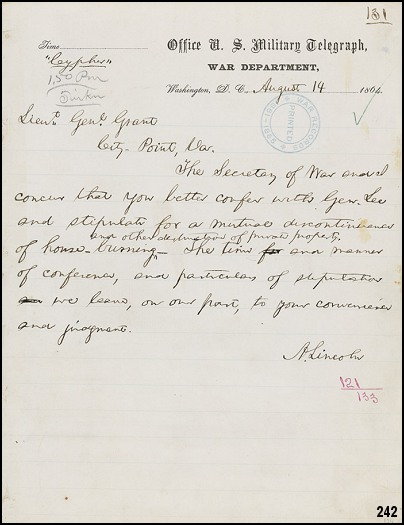 131
Time
Office U. S. Military Telegraph,
"Cypher"
WAR DEPARTMENT,
1.50 Pm
Washington, D. C., August 14 1864.
WAR RECORDS
PRINTED
Lieut. Genl. Grant
City-Point, Va.
The Secretary of War and I
concur that you better confer with Gen. Lee
and stipulate for a mutual discontinuance
and other destruction of private property.
of house-burning. The time for and manner
of conference, and particulars of stipulation
we leave, on our part, to your convenience
and judgment.
A. Lincoln
121
133
242